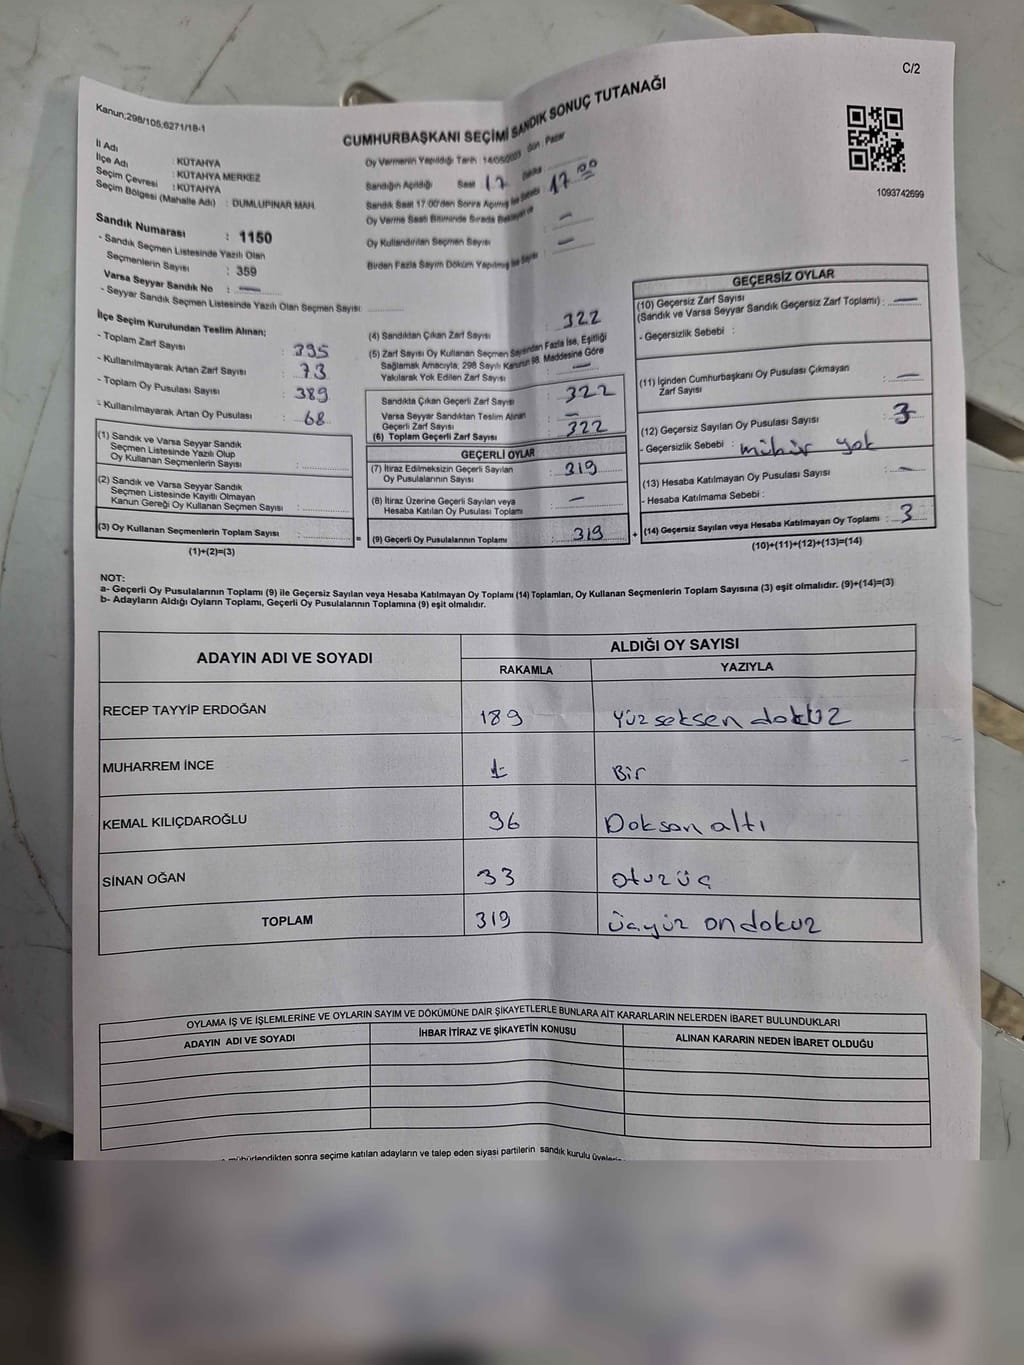 C/2
Kanun;298/105;6271/18-1
CUMHURBAŞKANI SEÇİMİ SANDIK SONUÇ TUTANAĞI
1093742699
İl Adı : KÜTAHYA
İlçe Adı : KÜTAHYA MERKEZ
Seçim Çevresi : KÜTAHYA
Seçim Bölgesi (Mahalle Adı) : DUMLUPINAR MAH.
Sandık Numarası : 1150
- Sandık Seçmen Listesinde Yazılı Olan
Seçmenlerin Sayısı : 359
Varsa Seyyar Sandık No : —
- Seyyar Sandık Seçmen Listesinde Yazılı Olan Seçmen Sayısı:
Oy Vermenin Yapıldığı Tarih 14/05/2023 Gün : Pazar
Sandığın Açıldığı Saat 17 Dakika 00
Sandık Saat 17.00'den Sonra Açılmış İse Sebebi : 17
Oy Verme Saati Bitiminde Sırada Bekleyen ve
Oy Kullandırılan Seçmen Sayısı : —
Birden Fazla Sayım Döküm Yapılmış İse Sayısı : —
İlçe Seçim Kurulundan Teslim Alınan;
- Toplam Zarf Sayısı : 395
- Kullanılmayarak Artan Zarf Sayısı : 73
- Toplam Oy Pusulası Sayısı : 389
- Kullanılmayarak Artan Oy Pusulası : 68
(1) Sandık ve Varsa Seyyar Sandık
Seçmen Listesinde Yazılı Olup
Oy Kullanan Seçmenlerin Sayısı :
(2) Sandık ve Varsa Seyyar Sandık
Seçmen Listesinde Kayıtlı Olmayan
Kanun Gereği Oy Kullanan Seçmen Sayısı :
(3) Oy Kullanan Seçmenlerin Toplam Sayısı :
(1)+(2)=(3)
(4) Sandıktan Çıkan Zarf Sayısı : 322
(5) Zarf Sayısı Oy Kullanan Seçmen Sayısından Fazla İse, Eşitliği
Sağlamak Amacıyla; 298 Sayılı Kanunun 98. Maddesine Göre
Yakılarak Yok Edilen Zarf Sayısı : —
Sandıkta Çıkan Geçerli Zarf Sayısı : 322
Varsa Seyyar Sandıktan Teslim Alınan
Geçerli Zarf Sayısı : —
(6) Toplam Geçerli Zarf Sayısı : 322
GEÇERLİ OYLAR
(7) İtiraz Edilmeksizin Geçerli Sayılan
Oy Pusulalarının Sayısı : 319
(8) İtiraz Üzerine Geçerli Sayılan veya
Hesaba Katılan Oy Pusulası Toplamı : —
= (9) Geçerli Oy Pusulalarının Toplamı : 319
GEÇERSİZ OYLAR
(10) Geçersiz Zarf Sayısı
(Sandık ve Varsa Seyyar Sandık Geçersiz Zarf Toplamı) : —
- Geçersizlik Sebebi :
(11) İçinden Cumhurbaşkanı Oy Pusulası Çıkmayan
Zarf Sayısı : —
(12) Geçersiz Sayılan Oy Pusulası Sayısı : 3
- Geçersizlik Sebebi : mühür yok
(13) Hesaba Katılmayan Oy Pusulası Sayısı : —
- Hesaba Katılmama Sebebi :
+ (14) Geçersiz Sayılan veya Hesaba Katılmayan Oy Toplamı : 3
(10)+(11)+(12)+(13)=(14)
NOT:
a- Geçerli Oy Pusulalarının Toplamı (9) ile Geçersiz Sayılan veya Hesaba Katılmayan Oy Toplamı (14) Toplamları, Oy Kullanan Seçmenlerin Toplam Sayısına (3) eşit olmalıdır. (9)+(14)=(3)
b- Adayların Aldığı Oyların Toplamı, Geçerli Oy Pusulalarının Toplamına (9) eşit olmalıdır.
ADAYIN ADI VE SOYADI
ALDIĞI OY SAYISI
RAKAMLA YAZIYLA
RECEP TAYYİP ERDOĞAN 189 Yüz seksen dokuz
MUHARREM İNCE 1 Bir
KEMAL KILIÇDAROĞLU 96 Doksan altı
SİNAN OĞAN 33 otuzüç
TOPLAM 319 üçyüz on dokuz
OYLAMA İŞ VE İŞLEMLERİNE VE OYLARIN SAYIM VE DÖKÜMÜNE DAİR ŞİKAYETLERLE BUNLARA AİT KARARLARIN NELERDEN İBARET BULUNDUKLARI
ADAYIN ADI VE SOYADI İHBAR İTİRAZ VE ŞİKAYETİN KONUSU ALINAN KARARIN NEDEN İBARET OLDUĞU
mühürlendikten sonra seçime katılan adayların ve talep eden siyasi partilerin sandık kurulu